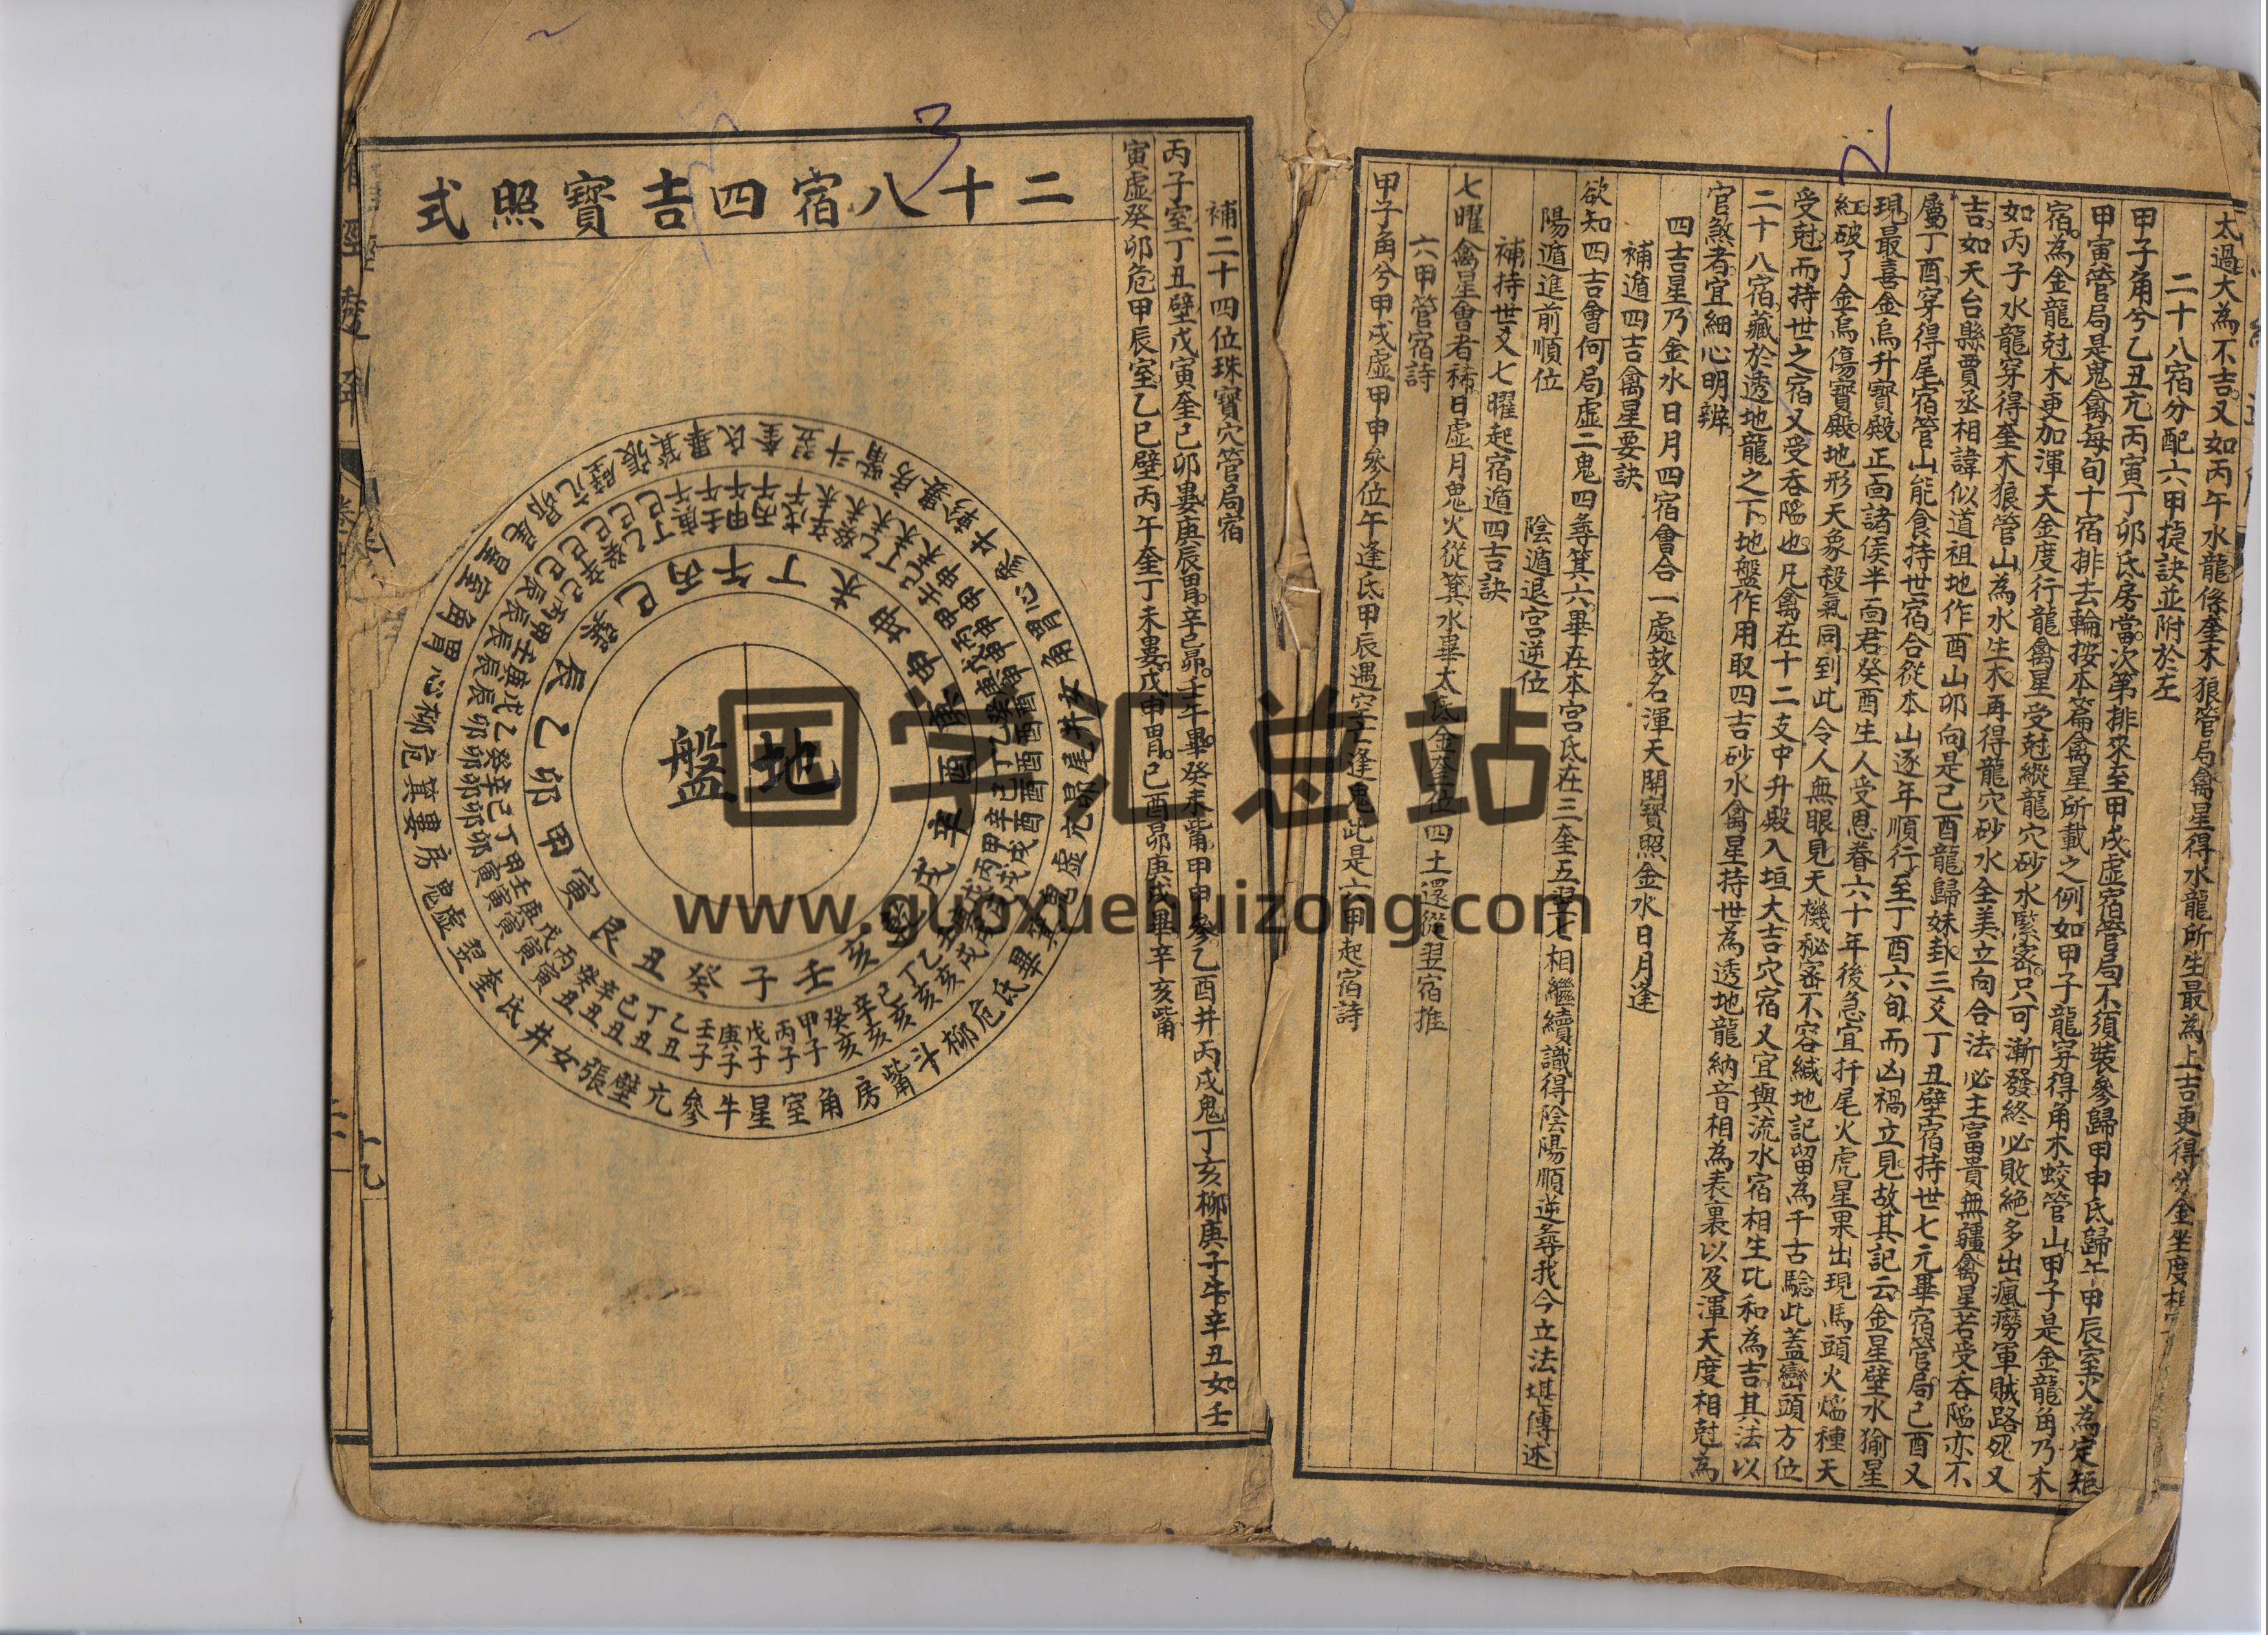 太過大為不吉又如丙午水龍係奎木狼管局禽星得水龍所生最為上吉更得分金坐度相
二十八宿分配六甲捷訣並附於左
甲子角兮乙丑亢丙寅丁卯氐房當次第排來至甲戌虛宿管局不須裝參歸甲申氐歸午甲辰室火為定矩
甲寅管局是鬼禽每旬十宿排去輪按本篇禽星所載之例如甲子龍穿得角木蛟管山甲子是金龍角乃木
宿為金龍尅木更加渾天金度行龍禽星受尅縱龍穴砂水緊密只可漸發終必敗絕多出瘋癆軍賊路死又
如丙子水龍穿得奎木狼管山為水生木再得龍穴砂水全美立向合法必主富貴無疆禽星若受吞陷亦不
吉如天台縣賈丞相諱似道祖地作酉山卯向是己酉龍歸妹卦三爻丁丑壁宿持世七元畢宿管局己酉又
屬丁酉穿得尾宿管山能食持世宿合從本山逐年順行至丁酉六旬而凶禍立見故其記云金星壁水㺄星
現最喜金烏升寶殿正面諸侯半面君癸酉生人受恩眷六十年後急宜扦尾火虎星果出現馬頭火燄種天
紅破了金烏傷寶殿地形天象殺氣同到此令人無眼見天機秘密不容緘地記留為千古驗此蓋巒頭方位
受尅而持世之宿又受吞陷也凡禽在十二支中升殿入垣大吉穴宿又宜與流水宿相生比和為吉其法以
二十八宿藏於透地龍之下地盤作用取四吉砂水禽星持世為透地龍納音相為表裏以及渾天度相尅為
官煞者宜細心明辨
四吉星乃金水日月四宿會合一處故名渾天開寶照金水日月逢
補遁四吉禽星要訣
欲知四吉會何局虛二鬼四尋箕六畢在本宮氐在三奎五翌七相繼續識得陰陽順逆尋我今立法堪傳述
陽遁進前順位　陰遁退宮逆位
補持世爻七曜起宿遁四吉訣
七曜禽星會者稀日虛月鬼火從箕水畢木氐金奎位四土還從翌宿推
六甲管宿詩
甲子角兮甲戌虛甲申參位午逢氐甲辰遇室壬逢鬼此是六甲起宿詩
補二十四位珠寶穴管局宿
丙子室丁丑壁戊寅奎己卯婁庚辰胃辛巳昴壬午畢癸未觜甲申參乙酉井丙戌鬼丁亥柳庚子牛辛丑女壬
寅虛癸卯危甲辰室乙巳壁丙午奎丁未婁戊申胃己酉昴庚戌畢辛亥觜
二十八宿四吉寶照式
地盤
壬子癸丑艮寅甲卯乙辰巽巳丙午丁未坤申庚酉辛戌乾亥
甲子 丙子 戊子 庚子 壬子 乙丑 丁丑 己丑 辛丑 癸丑 丙寅 戊寅 庚寅 壬寅 甲寅 丁卯 己卯 辛卯 癸卯 乙卯
角室星牛參亢壁張女井氐奎翌虛鬼房婁箕危柳心胃角室星尾昴
國学汇总站
www.guoxuehuizong.com